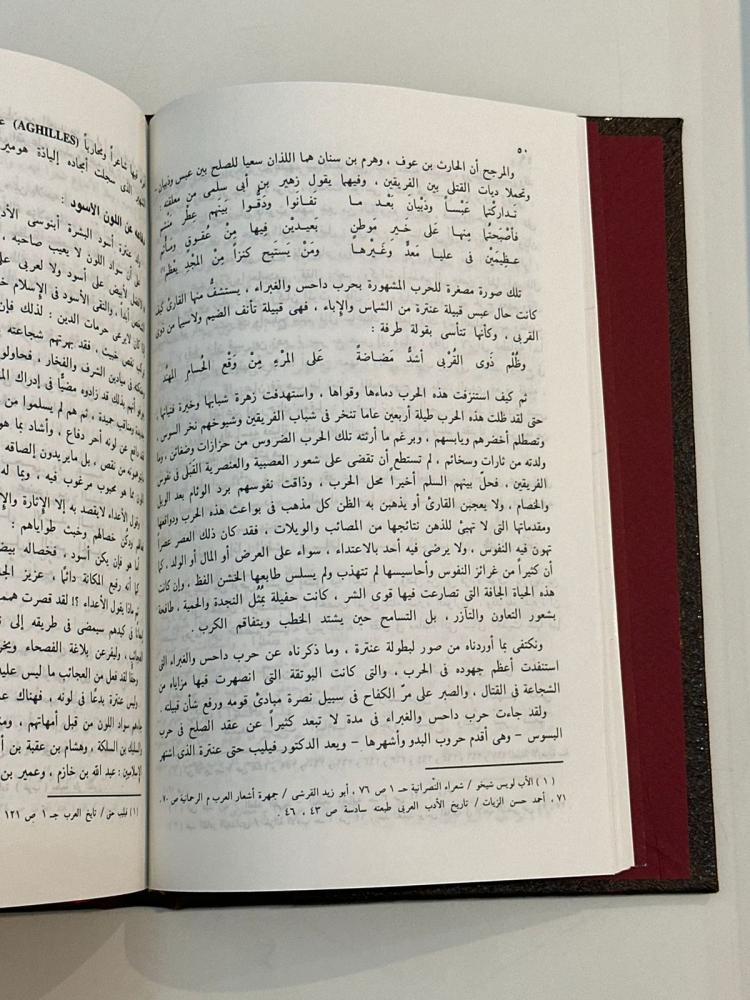 ٥٠
والمرجح أن الحارث بن عوف ، وهرم بن سنان هما اللذان سعيا للصلح بين عبس وذبيان ،
وتحملا ديات القتلى بين الفريقين ، وفيهما يقول زهير بن أبي سلمى من معلقته :
تداركتما عَبْساً وذبْيانَ بَعْد ما تفانَوا ودَقُّوا بَيْنَهم عِطْر مَنْشم
فأصْبَحتُما مِنها عَلى خيرِ مَوطنٍ بَعيدَيْن فِيها مِنْ عُقوقٍ ومأثم
عظِيمَيْن فى عليا مَعدٍّ وغَيْرها ومَنْ يَستَبِح كنزاً مِنَ المجْدِ يَعْظم(١)
تلك صورة مصغرة للحرب المشهورة بحرب داحس والغبراء ، يستشفُّ منها القارئ كيف
كانت حال عبس قبيلة عنترة من الشماس والإباء ، فهى قبيلة تأنف الضيم ولاسيما من ذوى
القربى ، وكأنها تتأسى بقولة طرفة :
وظُلْم ذَوى القُرْبى أشدُّ مَضاضةً عَلى المرْءِ مِنْ وَقْعِ الحُسامِ المهنَّد
ثم كيف استنزفت هذه الحرب دماءها وقواها ، واستهدفت زهرة شبابها وخيرة فتيانها ،
حتى لقد ظلت هذه الحرب طيلة أربعين عاما تنخر فى شباب الفريقين وشيوخهم نخر السوس ،
وتصطلم أخضرهم ويابسهم ، وبرغم ما أرثته تلك الحرب الضروس من حزازات وضغائن ، وما
ولدته من ثارات وسخائم ، لم تستطع أن تقضى على شعور العصبية والعنصرية القبَلى فى نفوس
الفريقين ، فحلّ بينهم السلم أخيراً محل الحرب ، وذاقت نفوسهم برد الوئام بعد الويل
والخصام ، ولا يعجبن القارئ أو يذهبن به الظن كل مذهب فى بواعث هذه الحرب ودوافعها
ومقدماتها التى لا تهيئ للذهن نتائجها من المصائب والويلات ، فقد كان ذلك العصر عصراً
تهون فيه النفوس ، ولا يرضى فيه أحد بالاعتداء ، سواء على العرض أو المال أو الولد ، كما
أن كثيراً من غرائز النفوس وأحاسيسها لم تتهذب ولم يسلس طابعها الخشن الفظ ، وإن كانت
هذه الحياة الجافة التى تصارعت فيها قوى الشر ، كانت حفيلة بمُثُل النجدة والحمية ، طافحة
بشعور التعاون والتآزر ، بل التسامح حين يشتد الخطب ويتفاقم الكرب .
ونكتفى بما أوردناه من صور لبطولة عنترة ، وما ذكرناه عن حرب داحس والغبراء التى
استنفدت أعظم جهوده فى الحرب ، والتى كانت البوتقة التى انصهرت فيها مزاياه من
الشجاعة فى القتال ، والصبر على مرّ الكفاح فى سبيل نصرة مبادئ قومه ورفع شأن قبيله .
ولقد جاءت حرب داحس والغبراء فى مدة لا تبعد كثيراً عن عقد الصلح فى حرب
البسوس – وهى أقدم حروب البدو وأشهرها – ويعد الدكتور فيليب حتى عنترة الذى اشتهر
( ١ ) الأب لويس شيخو / شعراء النّصرانية جـ ١ ص ٧٦ ، أبو زيد القرشى / جمهرة أشعار العرب م الرحمانية ص ٧٠ ،
٧١ ، أحمد حسن الزيات / تاريخ الأدب العربى طبعته سادسة ص ٤٣ ، ٤٦ .
شاعراً ومحارباً (AGHILLES)
سجلت أمجاده إلياذة هومير
عن اللون الأسود :
عنترة أسود البشرة أبنوسى
أن سواد اللون لا يعيب صاحبه ،
لأبيض على أسود ولا لعربى على
أبداً ، والتقى الأسود فى الإسلام
كان لايرعى حرمات الدين : لذلك فإن
نقص خبث ، فقد بهرتهم شجاعته
فى ميادين الشرف والفخار ، فحاولو
أنهم بذلك قد زادوه مضيًّا فى إدراك
ومناقب حميدة ، ثم هم لم يسلموا من
دافع عن لونه أحر دفاع ، وأشاد بما
من نقص ، بل مايريدون إلصاقه
بما هو محبوب مرغوب فيه ، وبما له
الأعداء لايقصد به إلا الإثارة
خصالهم وخبث طواياهم :
أما هو فإن يكن أسود ، فخصاله
أنه رفيع المكانة دائما ، عزيز
ماذا يقول الأعداء ؟! لقد قصرت
فى كيدهم سيمضى فى طريقه إلى
بلاغة الفصحاء
لقد فعل من العجائب ما ليس
وليس عنترة بدعًا فى لونه ، فهناك
سواد اللون من قبل أمهاتهم ،
والسليك بن السلكة ، وهشام بن عقبة بن
الإسلاميين : عبد الله بن خازم ، وعمير بن
(١) فيليب حتى / تاريخ العرب جـ ١ ص ١٢١